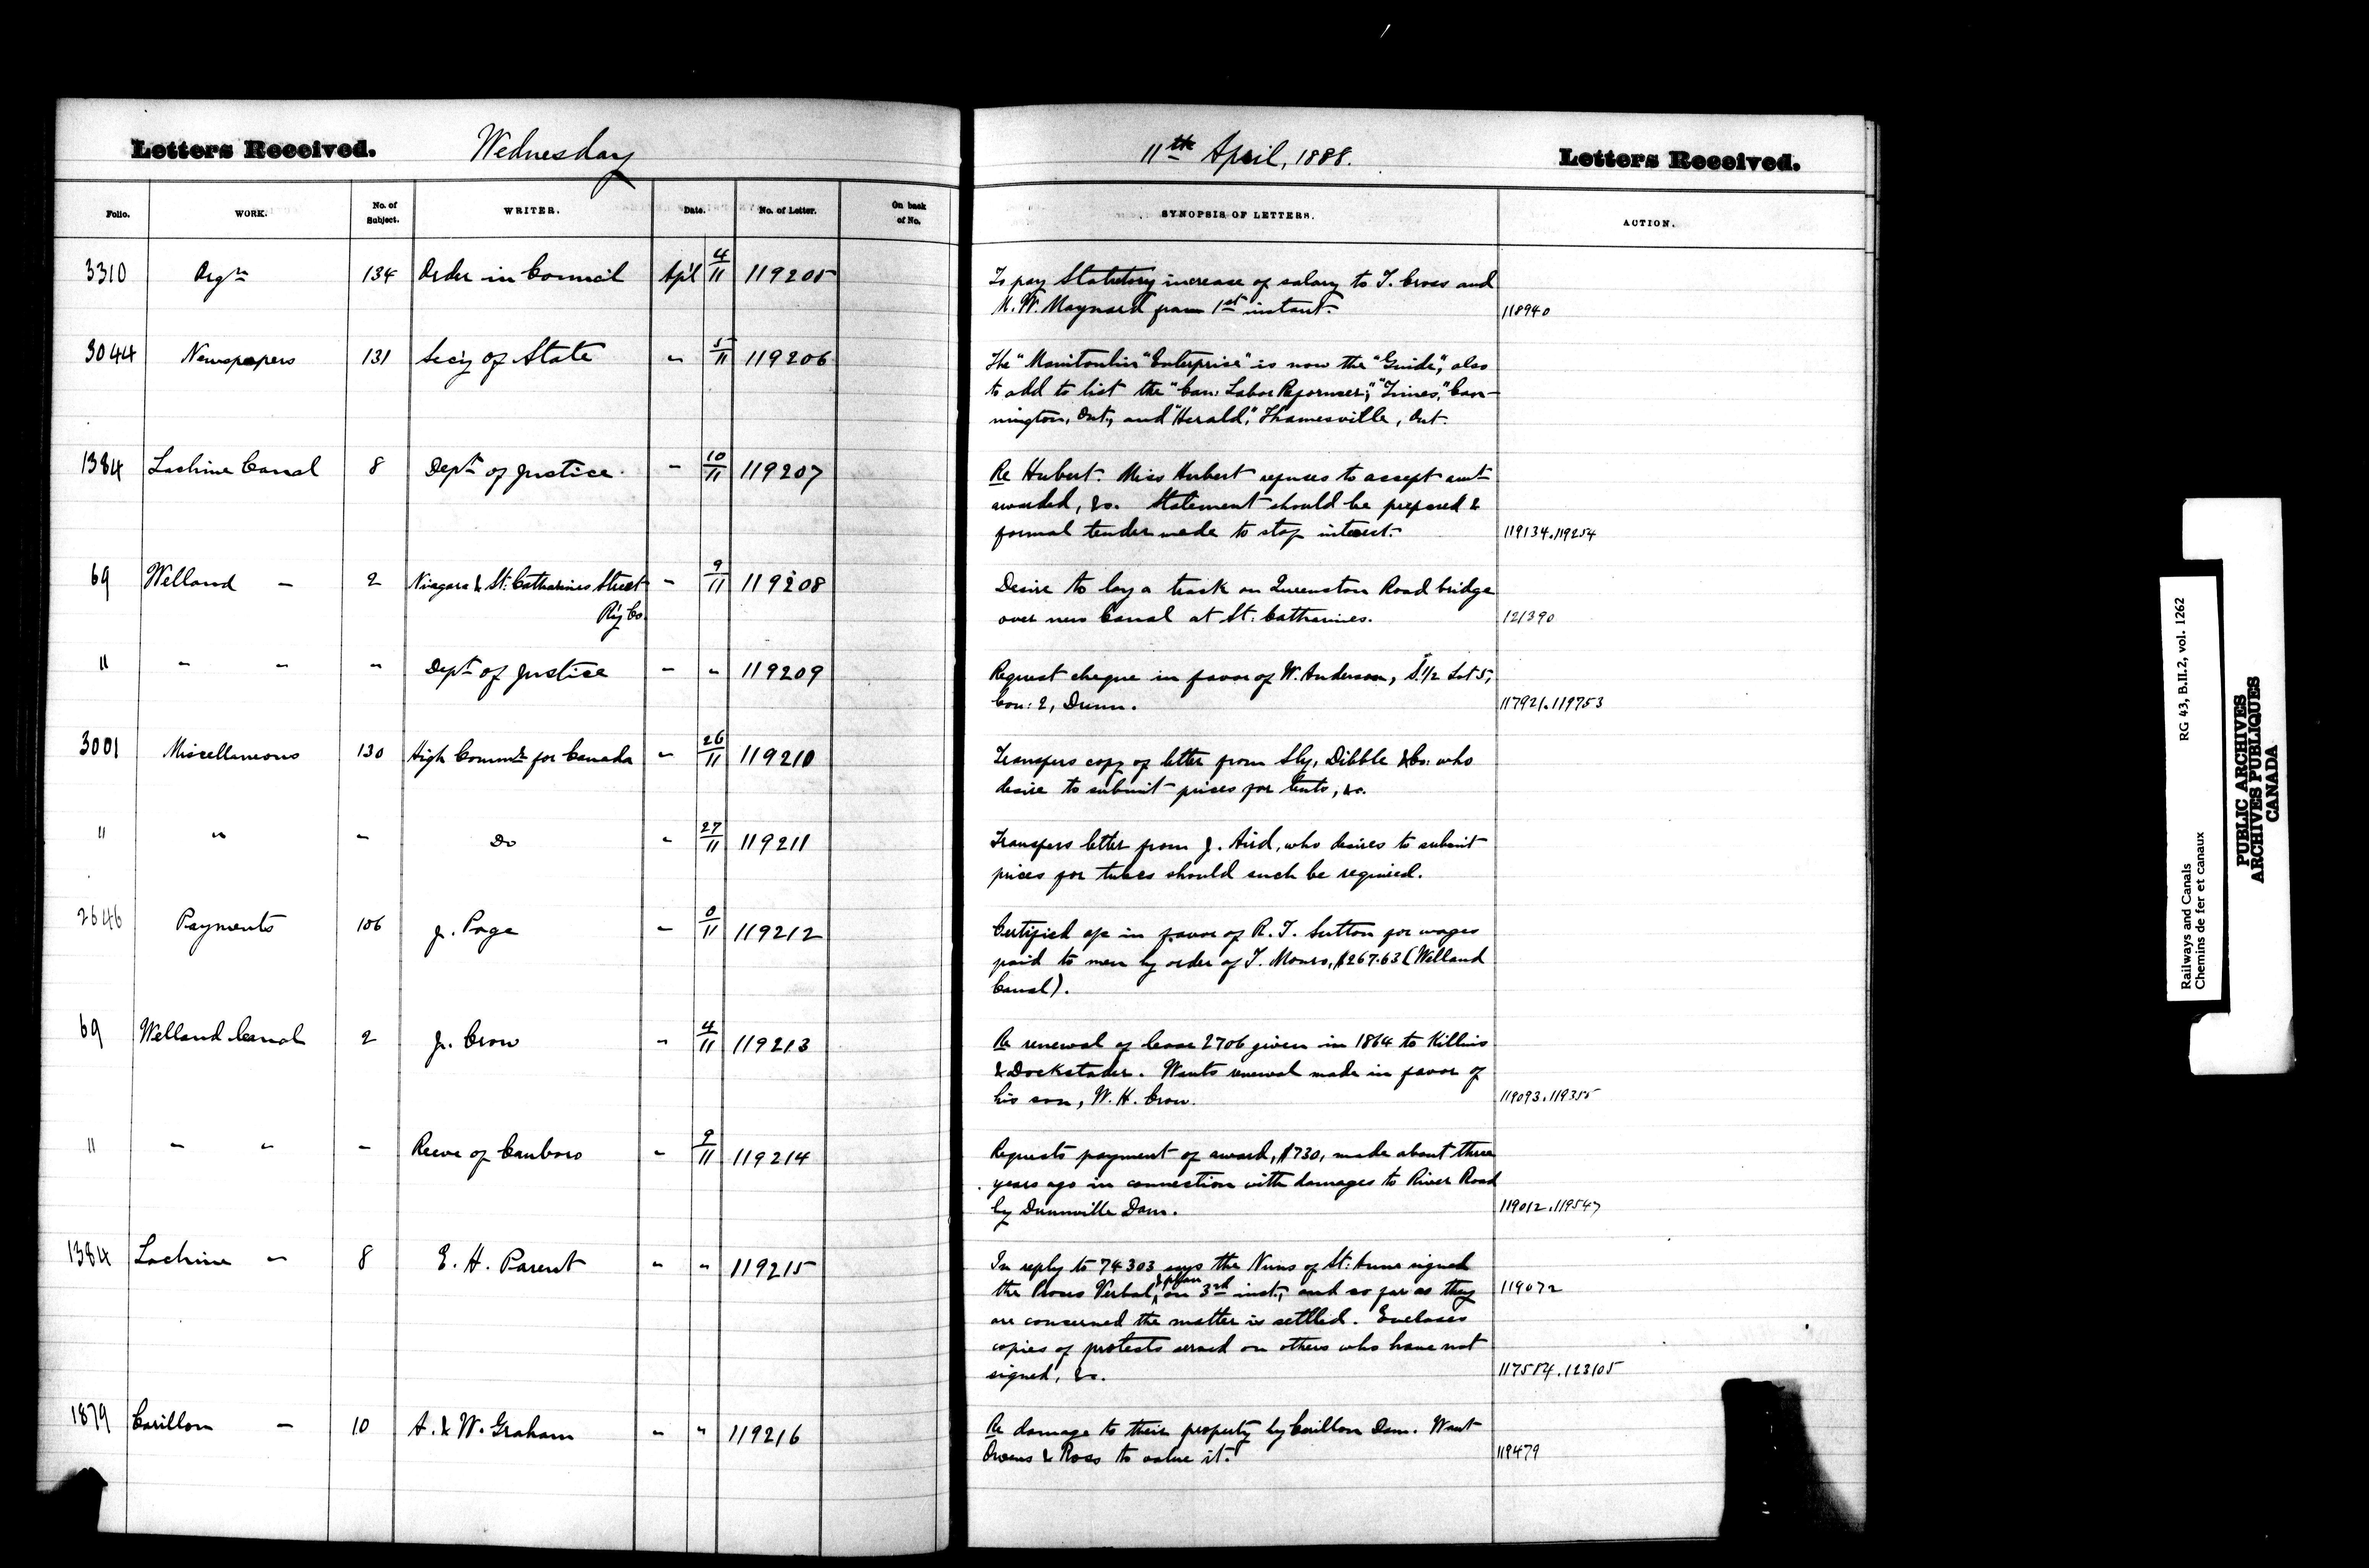 Letters Received. Wednesday
11th April, 1888. Letters Received.
Folio. WORK. No. of Subject. WRITER. Date. No. of Letter. On back of No. SYNOPSIS OF LETTERS. ACTION.
3310 Orgn 134 Order in Council Apl 4/11 119205
To pay Statutory increase of salary to T. Cross and
W. Maynard from 1st instant. 118940
3044 Newspapers 131 Secy of State " 5/11 119206
The "Manitoulin "Enterprise" is now the "Guide", also
to add to list the "Can: Labor Reformer", "Times," Can-
nington, Ont, and "Herald," Thamesville, Ont.
1384 Lachine Canal 8 Dept of Justice " 10/11 119207
Re Hubert. Miss Hubert refuses to accept amt
awarded, &c. Statement should be prepared &
formal tender made to stop interest. 119134.119254
69 Welland " 2 Niagara & St. Catharines Street " 9/11 119208
Ry Co.
Desire to lay a track on Queenston Road bridge
over new Canal at St. Catharines. 121390
" " " " Dept of Justice " " 119209
Request cheque in favor of W. Anderson, S. 1/2 Lot 5,
Con: 2, Dunn. 117921.119753
3001 Miscellaneous 130 High Commr for Canada " 26/11 119210
Transfers copy of letter from Sly, Dibble & Co. who
desire to submit prices for tents, &c.
" " " Do " 27/11 119211
Transfers letter from J. Aird, who desires to submit
prices for tubes should such be required.
2646 Payments 106 J. Page " 0/11 119212
Certified a/c in favor of R. T. Sutton for wages
paid to men by order of T. Monro, $267.63 (Welland
Canal).
69 Welland Canal 2 J. Crow " 4/11 119213
Re renewal of lease 2706 given in 1864 to Killins
& Dockstader. Wants renewal made in favor of
his son, W. H. Crow. 119093.119355
" " " " Reeve of Canboro " 9/11 119214
Requests payment of award, $730, made about three
years ago in connection with damages to River Road
by Dunnville Dam. 119012.119547
1384 Lachine " 8 E. H. Parent " " 119215
In reply to 74303 says the Nuns of St: Anne signed
the Proces Verbal, & plan on 3rd inst, and so far as they 119072
are concerned the matter is settled. Encloses
copies of protests served on others who have not
signed, &c. 117554.123105
1879 Carillon " 10 A. & W. Graham " " 119216
Re damage to their property by Carillon Dam. Want
Owens & Ross to value it. 119479
Railways and Canals RG 43, B.II.2, vol. 1262
Chemins de fer et canaux
PUBLIC ARCHIVES
ARCHIVES PUBLIQUES
CANADA